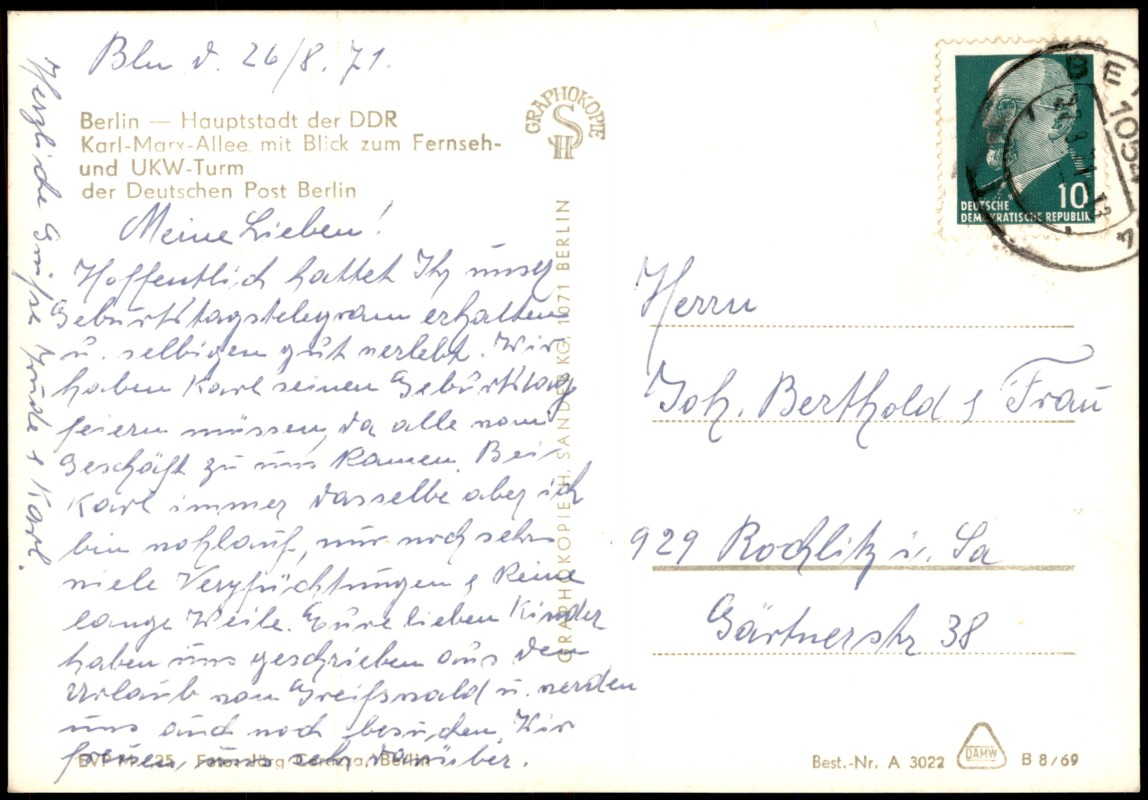 Bln d. 26/8. 71.
Berlin — Hauptstadt der DDR
Karl-Marx-Allee mit Blick zum Fernseh-
und UKW-Turm
der Deutschen Post Berlin
Meine Lieben!
Hoffentlich hattet Ihr unser
Geburtstagstelegram erhalten
u. selbigen gut verlebt. Wir
haben Karl seinen Geburtstag
feiern müssen, da alle vom
Geschäft zu uns kamen. Bei
Karl immer dasselbe aber ich
bin wohlauf, nur noch sehr
viele Verpflichtungen & keine
lange Weile. Eure lieben Kinder
haben uns geschrieben aus dem
Urlaub von Greifswald u. werden
uns auch noch besuchen. Wir
freuen, uns sehr darüber.
Herzliche Grüsse & Karl.
EVP M 0,25 Foto: Jörg Berlin
GRAPHOKOPIE
SH
GRAPHOKOPIE H. SANDER KG, 1071 BERLIN
10
DEUTSCHE
DEMOKRATISCHE REPUBLIK
BE
1054
Herrn
Joh. Berthold & Frau
929 Rochlitz i. Sa
Gärtnerstr 38
Best.-Nr. A 3022
DAMW
B 8/69